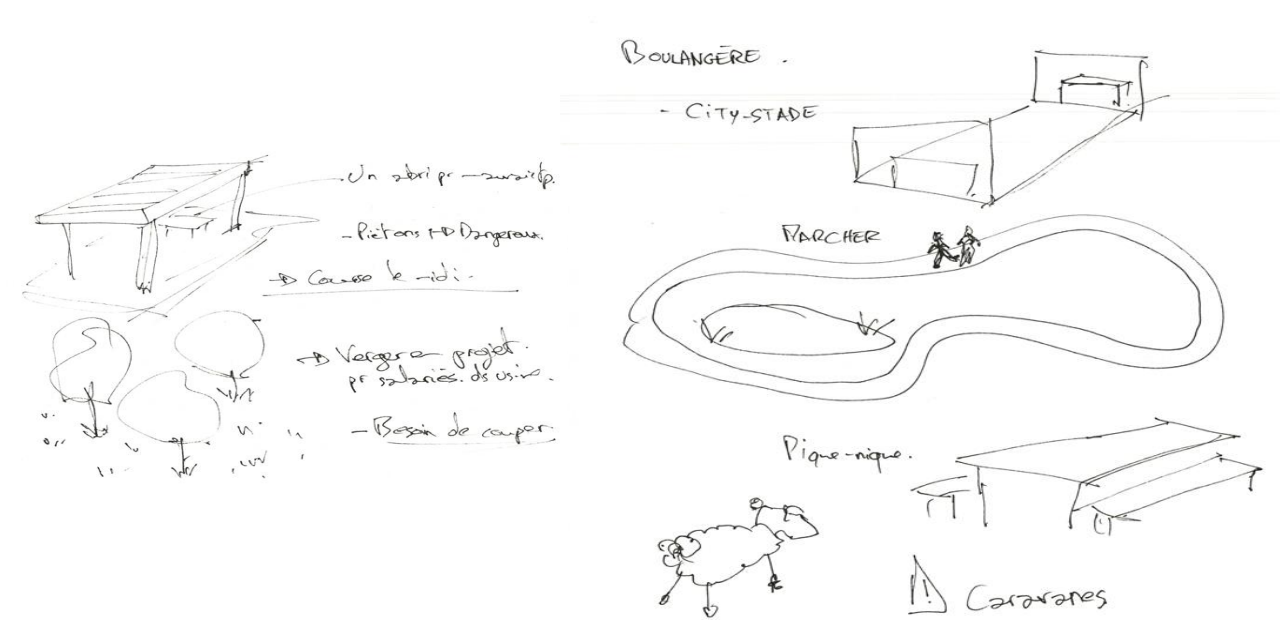 Un abri pr
- Piétons → Dangereux.
→ Course le midi.
→ Verger en projet.
pr salariés. ds usine.
- Besoin de couper
BOULANGÈRE.
- CITY-STADE
MARCHER
Pique-nique.
! Caravanes